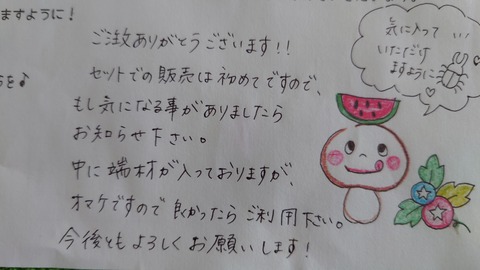 ますように！
ご注文ありがとうございます！！
セットでの販売は初めてですので、
もし気になる事がありましたら
お知らせ下さい。
中に端材が入っておりますが、
オマケですので良かったらご利用下さい。
今後ともよろしくお願いします！
気に入って
いただけ
ますように